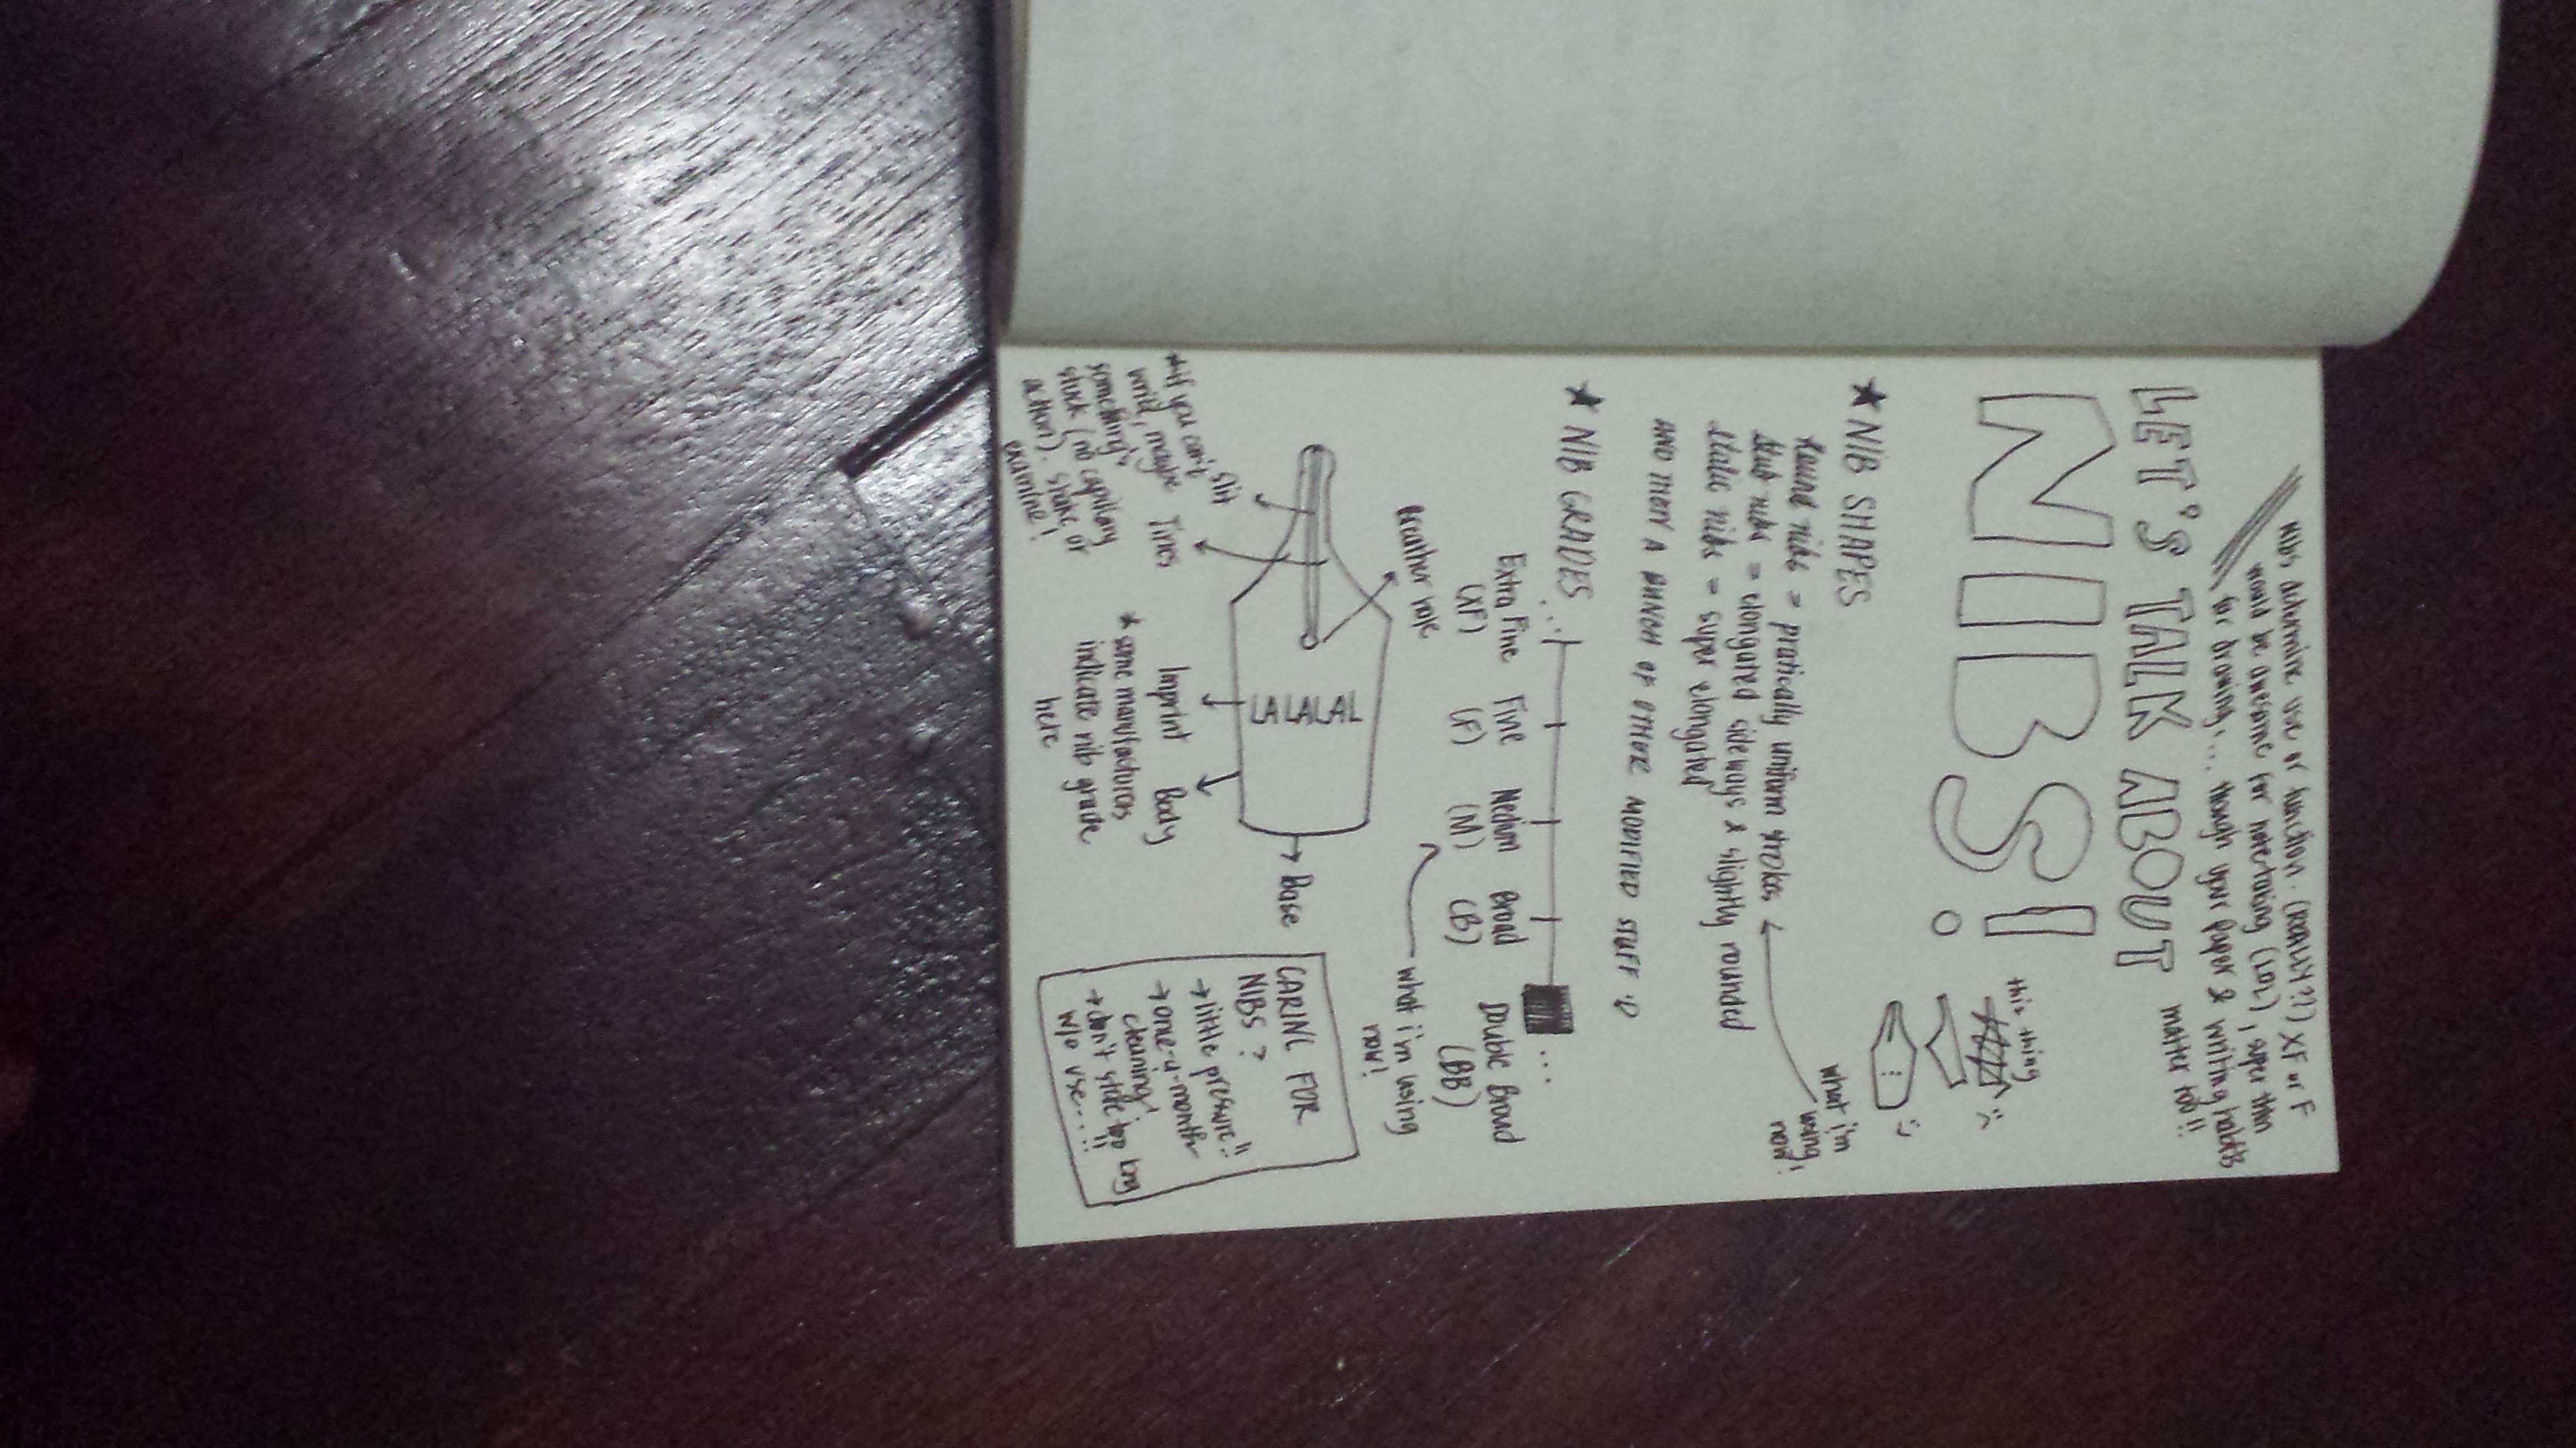 Nibs determine use or function. (REALLY??) XF or F
would be awesome for notetaking (LOL), super thin
for drawing,... though your paper & writing habits
matter too!!
LET'S TALK ABOUT
NIBS!
this thing
★ NIB SHAPES
Round nibs = pratically uniform strokes
Stub nibs = elongated sideways & slightly rounded
Italic nibs = super elongated
what i'm
using
now!
AND THEN A BUNCH OF OTHER MODIFIED STUFF
★ NIB GRADES
... ...
Extra Fine Fine Medium Broad Double Broad
(XF) (F) (M) (B) (BB)
what i'm using
now!
Breather hole
Slit
Tines
LALALAL
Base
Imprint Body
* some manufacturers
indicate nib grade
here
*If you can't
write, maybe
something's
stuck (no capillary
action). Shake or
examine!
CARING FOR
NIBS?
→ little pressure!!
→ one-a-month
cleaning!
→ don't store too long
w/o use...!!